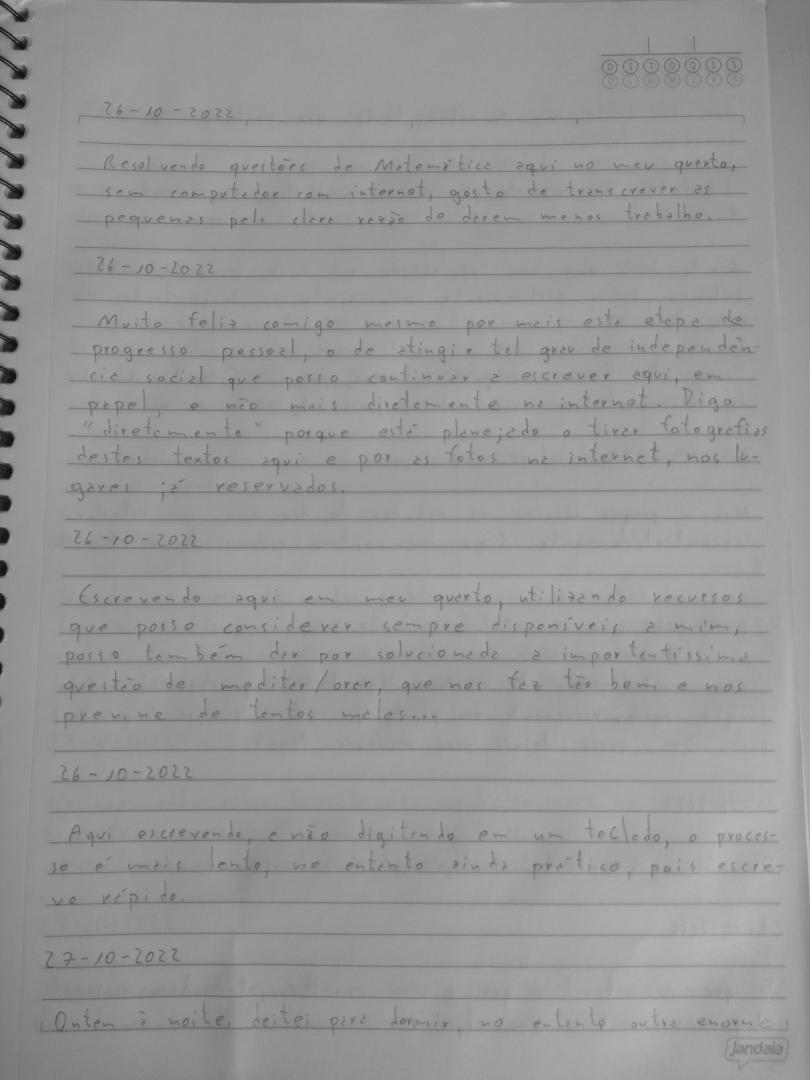 D S T Q Q S S
D L M M J V S
26-10-2022
Resolvendo questões de Matemática aqui no meu quarto,
sem computador com internet, gosto de transcrever as
pequenas pela clara razão de darem menos trabalho.
26-10-2022
Muito feliz comigo mesmo por mais esta etapa de
progresso pessoal, o de atingir tal grau de independên-
cia social que posso continuar a escrever aqui, em
papel, e não mais diretamente na internet. Digo
"diretamente" porque está planejado o tirar fotografias
destes textos aqui e por as fotos na internet, nos lu-
gares já reservados.
26-10-2022
Escrevendo aqui em meu quarto, utilizando recursos
que posso considerar sempre disponíveis a mim,
posso também dar por solucionada a importantíssima
questão de meditar/orar, que nos faz tão bem e nos
previne de tantos males...
26-10-2022
Aqui escrevendo, e não digitando em um teclado, o proces-
so é mais lento, no entanto ainda prático, pois escre-
vo rápido.
27-10-2022
Ontem à noite, deitei para dormir, no entanto outra enorme
Jandaia